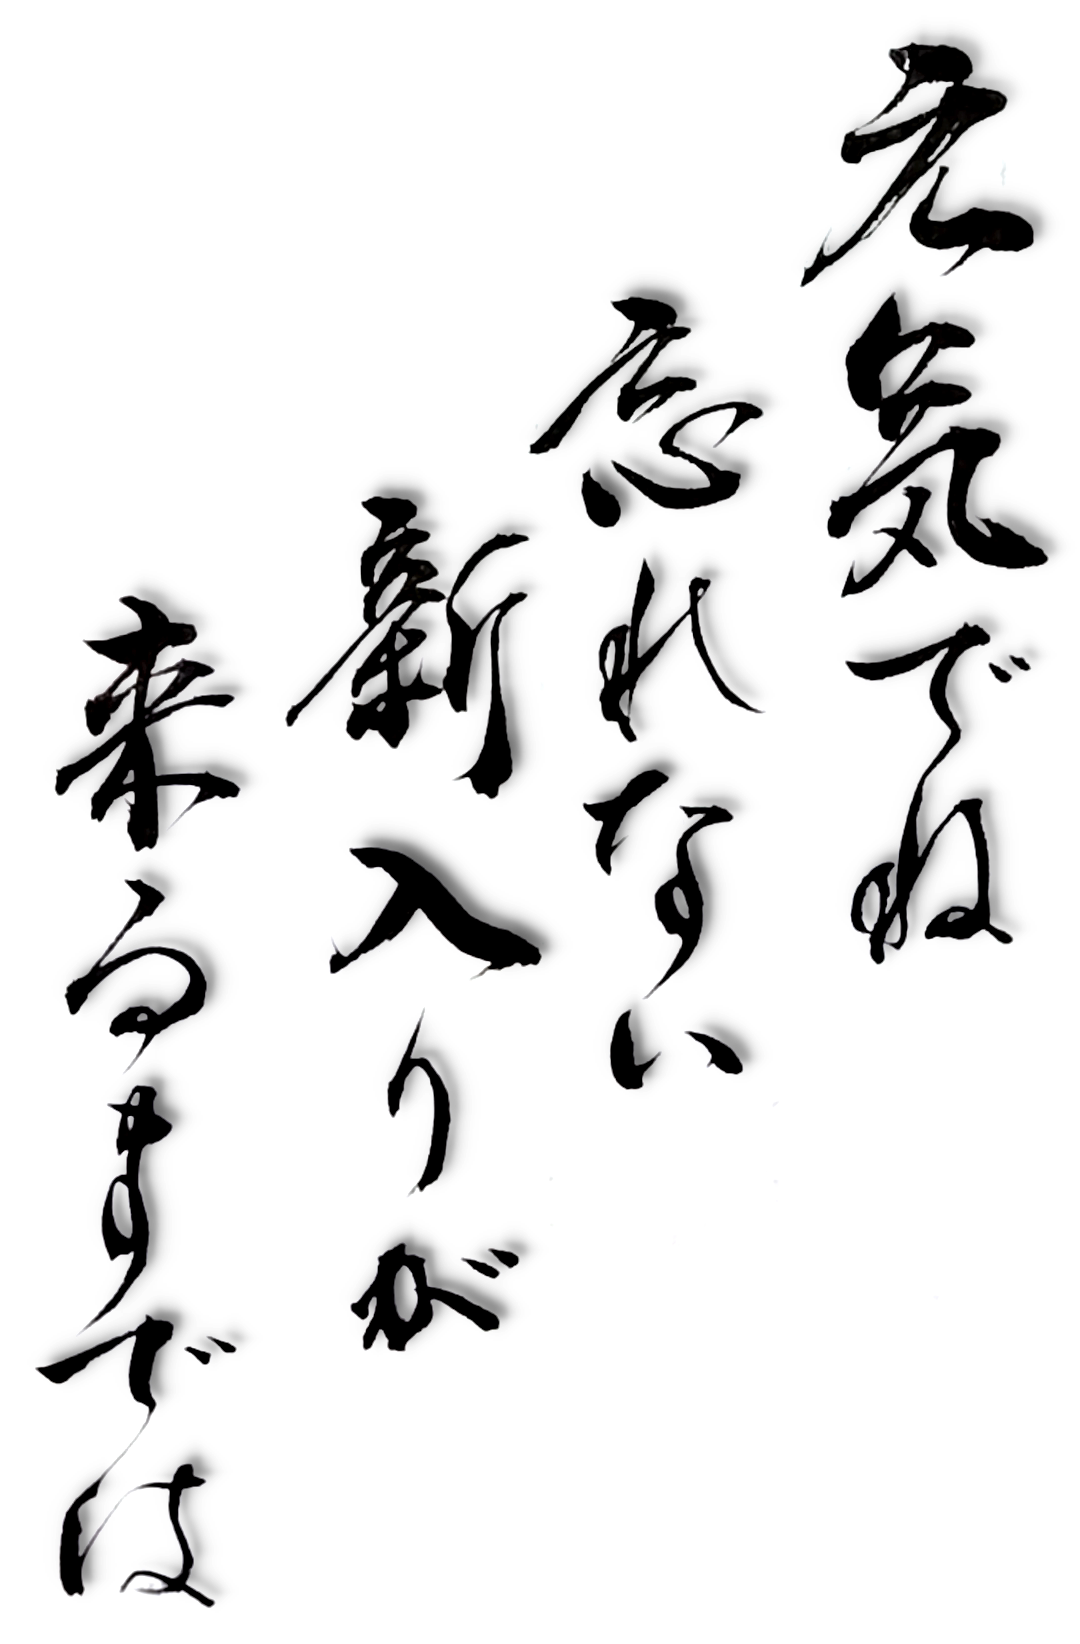 元気でね
忘れない
新入りが
来るまでは